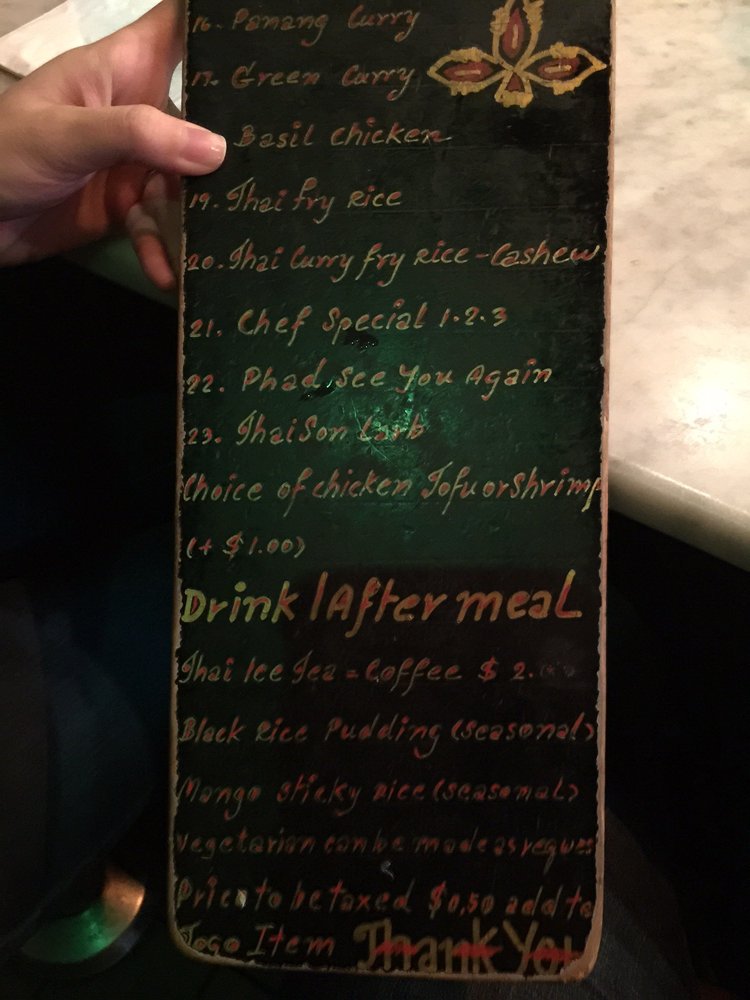 16. Panang Curry
17. Green Curry
Basil chicken
19. Thai fry Rice
20. Thai Curry fry Rice - Cashew
21. Chef Special 1.2.3
22. Phad See You Again
23. Thai Son Carb
Choice of chicken Tofu or Shrimp
(+ $1.00)
Drink / After meal
Thai Ice Tea = Coffee $ 2.
Black Rice Pudding (seasonal)
Mango sticky rice (seasonal)
vegetarian can be made as reques
Price to be taxed $0,50 add to
Togo Item Thank You